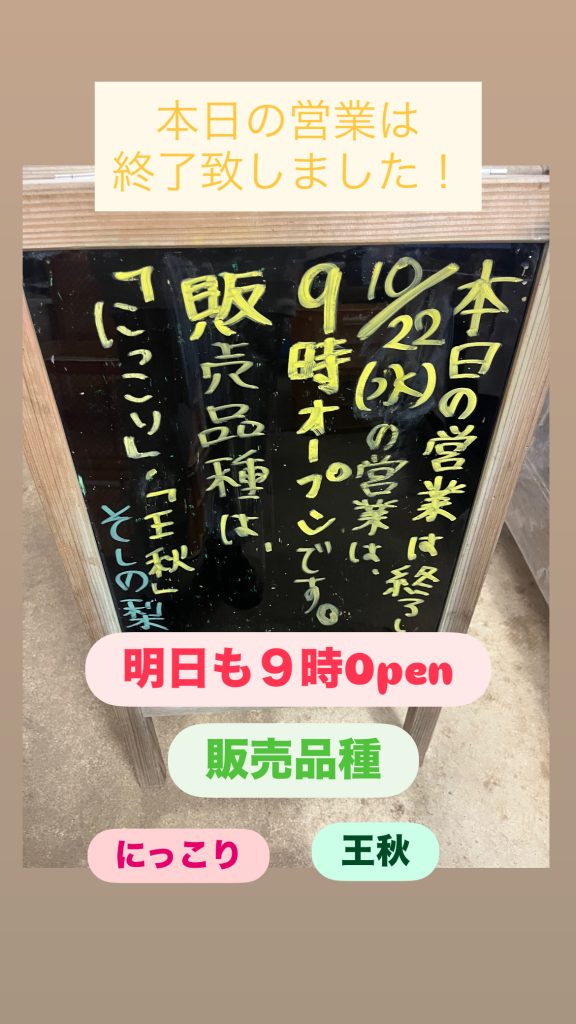 本日の営業は
終了致しました!
本日の営業は終了し
10/22(水)の営業は、
9時オープンです。
販売品種は、
「にっこり」、「王秋」
そしの梨
明日も9時Open
販売品種
にっこり
王秋